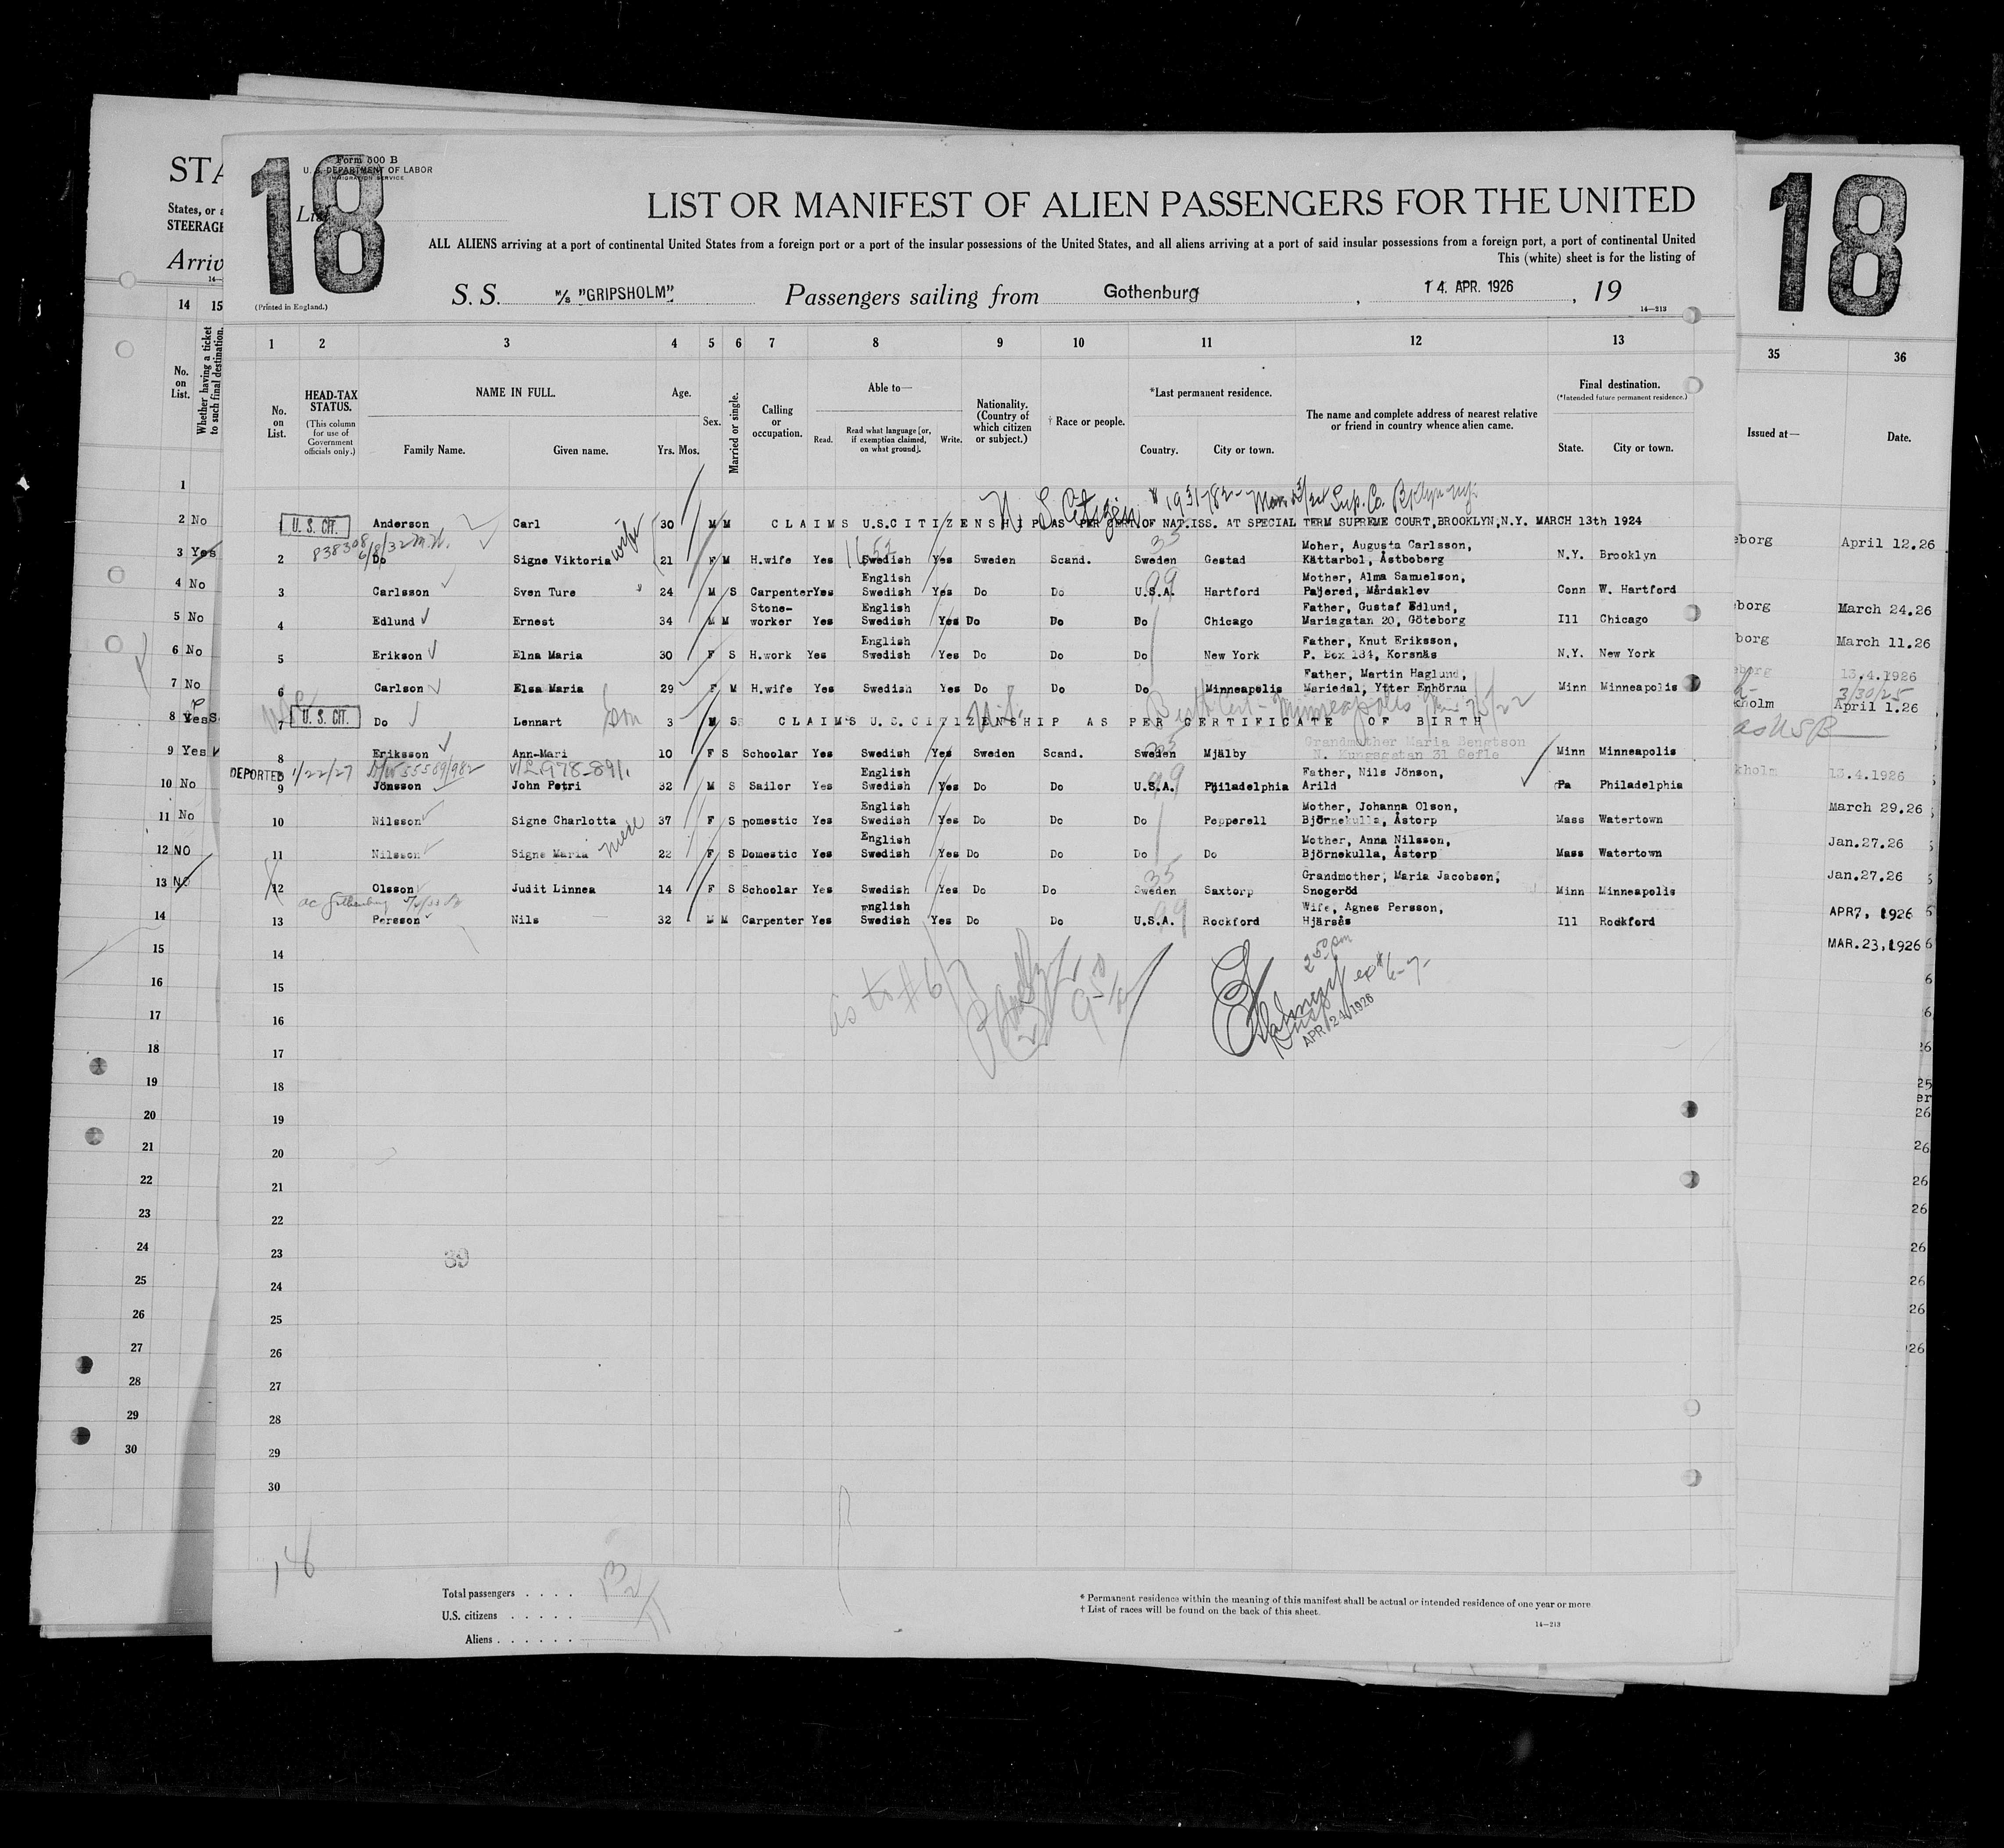 STA
States, or a
STEERAGE
Arriv
14—
14 15
No. on List.
Whether having a ticket to such final destination.
1
2 No
3 Yes
4 No
5 No
6 No
7 No
8 Yes
9 Yes
10 No
11 No
12 NO
13 No
14
15
16
17
18
19
20
21
22
23
24
25
26
27
28
29
30
18
Form 500 B
U. S. DEPARTMENT OF LABOR
IMMIGRATION SERVICE
List
(Printed in England.)
LIST OR MANIFEST OF ALIEN PASSENGERS FOR THE UNITED
ALL ALIENS arriving at a port of continental United States from a foreign port or a port of the insular possessions of the United States, and all aliens arriving at a port of said insular possessions from a foreign port, a port of continental United
This (white) sheet is for the listing of
S. S. M/S "GRIPSHOLM" Passengers sailing from Gothenburg, 14. APR. 1926, 19
14—213
1 2 3 4 5 6 7 8 9 10 11 12 13
No. on List.
HEAD-TAX STATUS.
(This column for use of Government officials only.)
NAME IN FULL.
Family Name. Given name.
Age.
Yrs. Mos.
Sex.
Married or single.
Calling or occupation.
Able to—
Read. Read what language [or, if exemption claimed, on what ground]. Write.
Nationality. (Country of which citizen or subject.)
† Race or people.
*Last permanent residence.
Country. City or town.
The name and complete address of nearest relative or friend in country whence alien came.
Final destination.
(*Intended future permanent residence.)
State. City or town.
U. S. Citizen
1 U. S. CIT. Anderson Carl 30 M M CLAIMS U.S.CITIZENSHIP AS PER CERT. OF NAT.ISS. AT SPECIAL TERM SUPREME COURT,BROOKLYN,N.Y. MARCH 13th 1924
838308 6/8/32 wife
33
Moher, Augusta Carlsson,
2 Do Signe Viktoria 21 F M H.wife Yes Swedish Yes Sweden Scand. Sweden Gestad Kättarbol, Åstboberg N.Y. Brooklyn
English 99 Mother, Alma Samuelson,
3 Carlsson Sven Ture 24 M S Carpenter Yes Swedish Yes Do Do U.S.A. Hartford Pajered, Mårdaklev Conn W. Hartford
Stone- English Father, Gustaf Edlund,
4 Edlund Ernest 34 M M worker Yes Swedish Yes Do Do Do Chicago Mariagatan 20, Göteborg Ill Chicago
English Father, Knut Eriksson,
5 Erikson Elna Maria 30 F S H.work Yes Swedish Yes Do Do Do New York P. Box 134, Korsnäs N.Y. New York
Father, Martin Haglund,
6 Carlson Elsa Maria 29 F M H.wife Yes Swedish Yes Do Do Do Minneapolis Mariedal, Ytter Enhörna Minn Minneapolis
Birth Cert - Minneapolis
7 U. S. CIT. Do Lennart son 3 M S CLAIMS U.S.CITIZENSHIP AS PER CERTIFICATE OF BIRTH
Grandmother Maria Bengtson
8 Eriksson Ann-Mari 10 F S Schoolar Yes Swedish Yes Sweden Scand. Sweden Mjälby N. Kungsgatan 31 Gefle Minn Minneapolis
DEPORTED 1/22/27 55589/982
English 99 Father, Nils Jönson,
9 Jönsson John Petri 32 M S Sailor Yes Swedish Yes Do Do U.S.A. Philadelphia Arild Pa Philadelphia
English Mother, Johanna Olson,
10 Nilsson Signe Charlotta 37 F S Domestic Yes Swedish Yes Do Do Do Pepperell Björnekulla, Åstorp Mass Watertown
niece
English Mother, Anna Nilsson,
11 Nilsson Signe Maria 22 F S Domestic Yes Swedish Yes Do Do Do Do Björnekulla, Åstorp Mass Watertown
35 Grandmother, Maria Jacobson,
12 Olsson Judit Linnea 14 F S Schoolar Yes Swedish Yes Do Do Sweden Saxtorp Snogeröd Minn Minneapolis
English 99 Wife, Agnes Persson,
13 Persson Nils 32 M M Carpenter Yes Swedish Yes Do Do U.S.A. Rockford Hjärsås Ill Rockford
14
15
as to #6/7
APR 24 1926
16
17
18
19
20
21
22
23
39
24
25
26
27
28
29
30
18
Total passengers . . . . 13
U.S. citizens . . . . . 2
Aliens . . . . . . 11
* Permanent residence within the meaning of this manifest shall be actual or intended residence of one year or more.
† List of races will be found on the back of this sheet.
14—213
18
35 36
Issued at— Date.
eborg April 12.26
borg March 24.26
borg March 11.26
eborg 13.4.1926
3/30/25
kholm April 1.26
as USB
kholm 13.4.1926
March 29.26
Jan.27.26
Jan.27.26
APR 7, 1926
MAR.23,1926